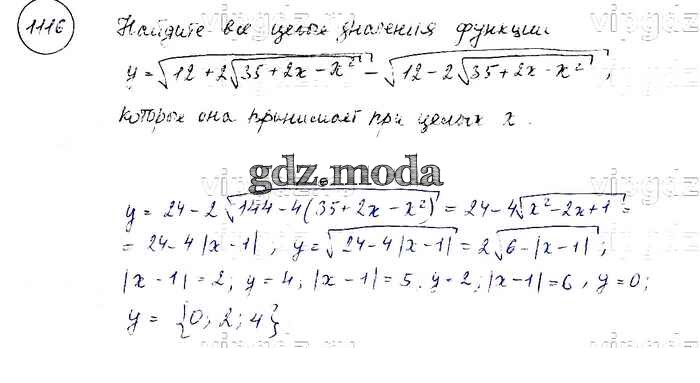 1116
Найдите все целые значения функции
y = √(12 + 2√(35 + 2x − x²)) − √(12 − 2√(35 + 2x − x²)),
которые она принимает при целых x.
gdz.moda
y = 24 − 2√(144 − 4(35 + 2x − x²)) = 24 − 4√(x² − 2x + 1) =
= 24 − 4|x − 1|; y = √(24 − 4|x − 1|) = 2√(6 − |x − 1|);
|x − 1| = 2; y = 4; |x − 1| = 5. y = 2; |x − 1| = 6, y = 0;
y = {0; 2; 4}